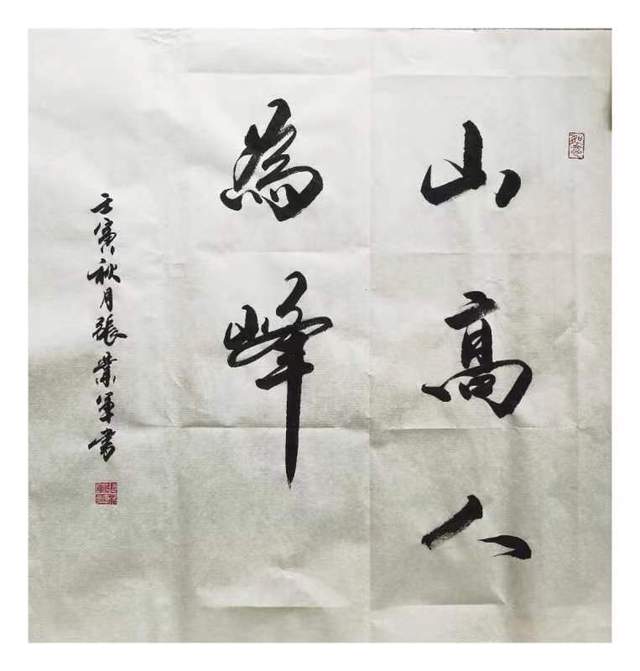 山高人
為峰
壬寅秋月張業軍書